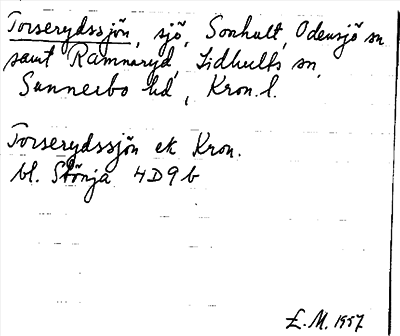 Torserydssjön, sjö, Sonhult, Odensjö sn
samt Ramnaryd, Lidhults sn,
Sunnerbo hd, Kron. l.
Torserydssjön ek Kron.
bl. Stönja 4D9b
E.M. 1957